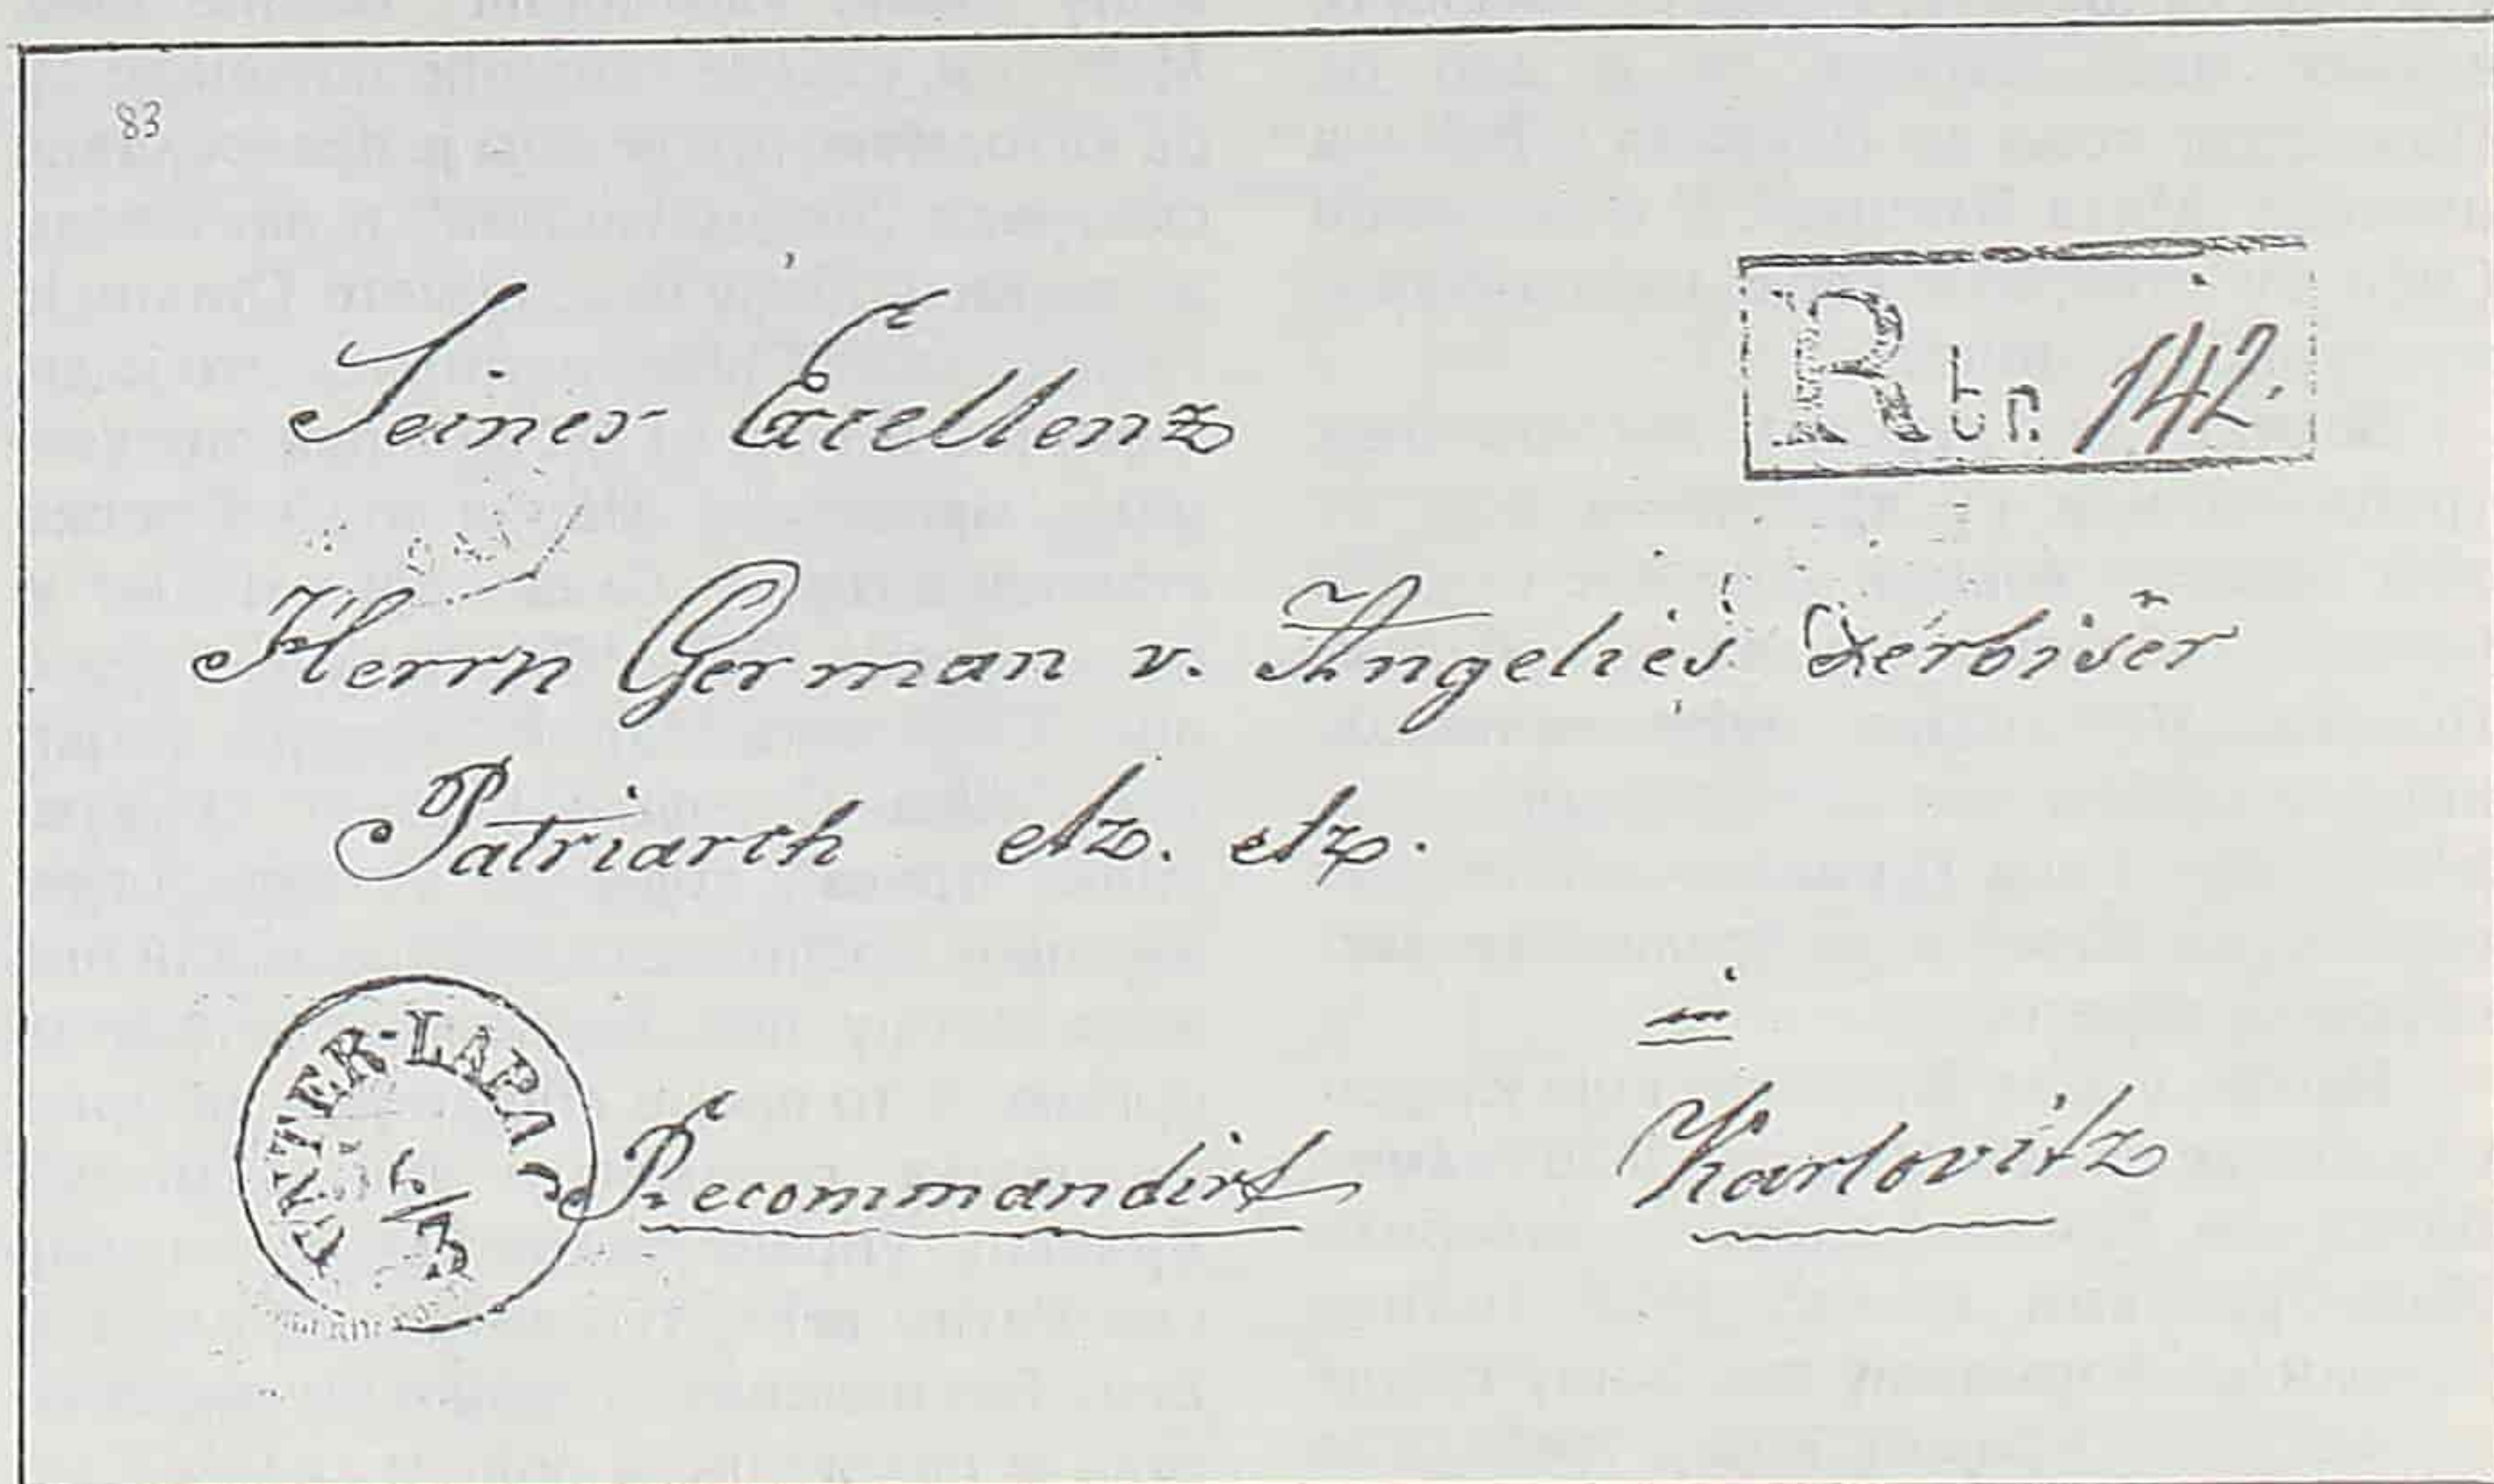 83
Seiner Excellenz
R tr. 142.
Herrn German v. Angelics Serbiser
Patriarch etz. etz.
in
UNTER-LAPAC
6/3
Recommandirt
Karlovitz